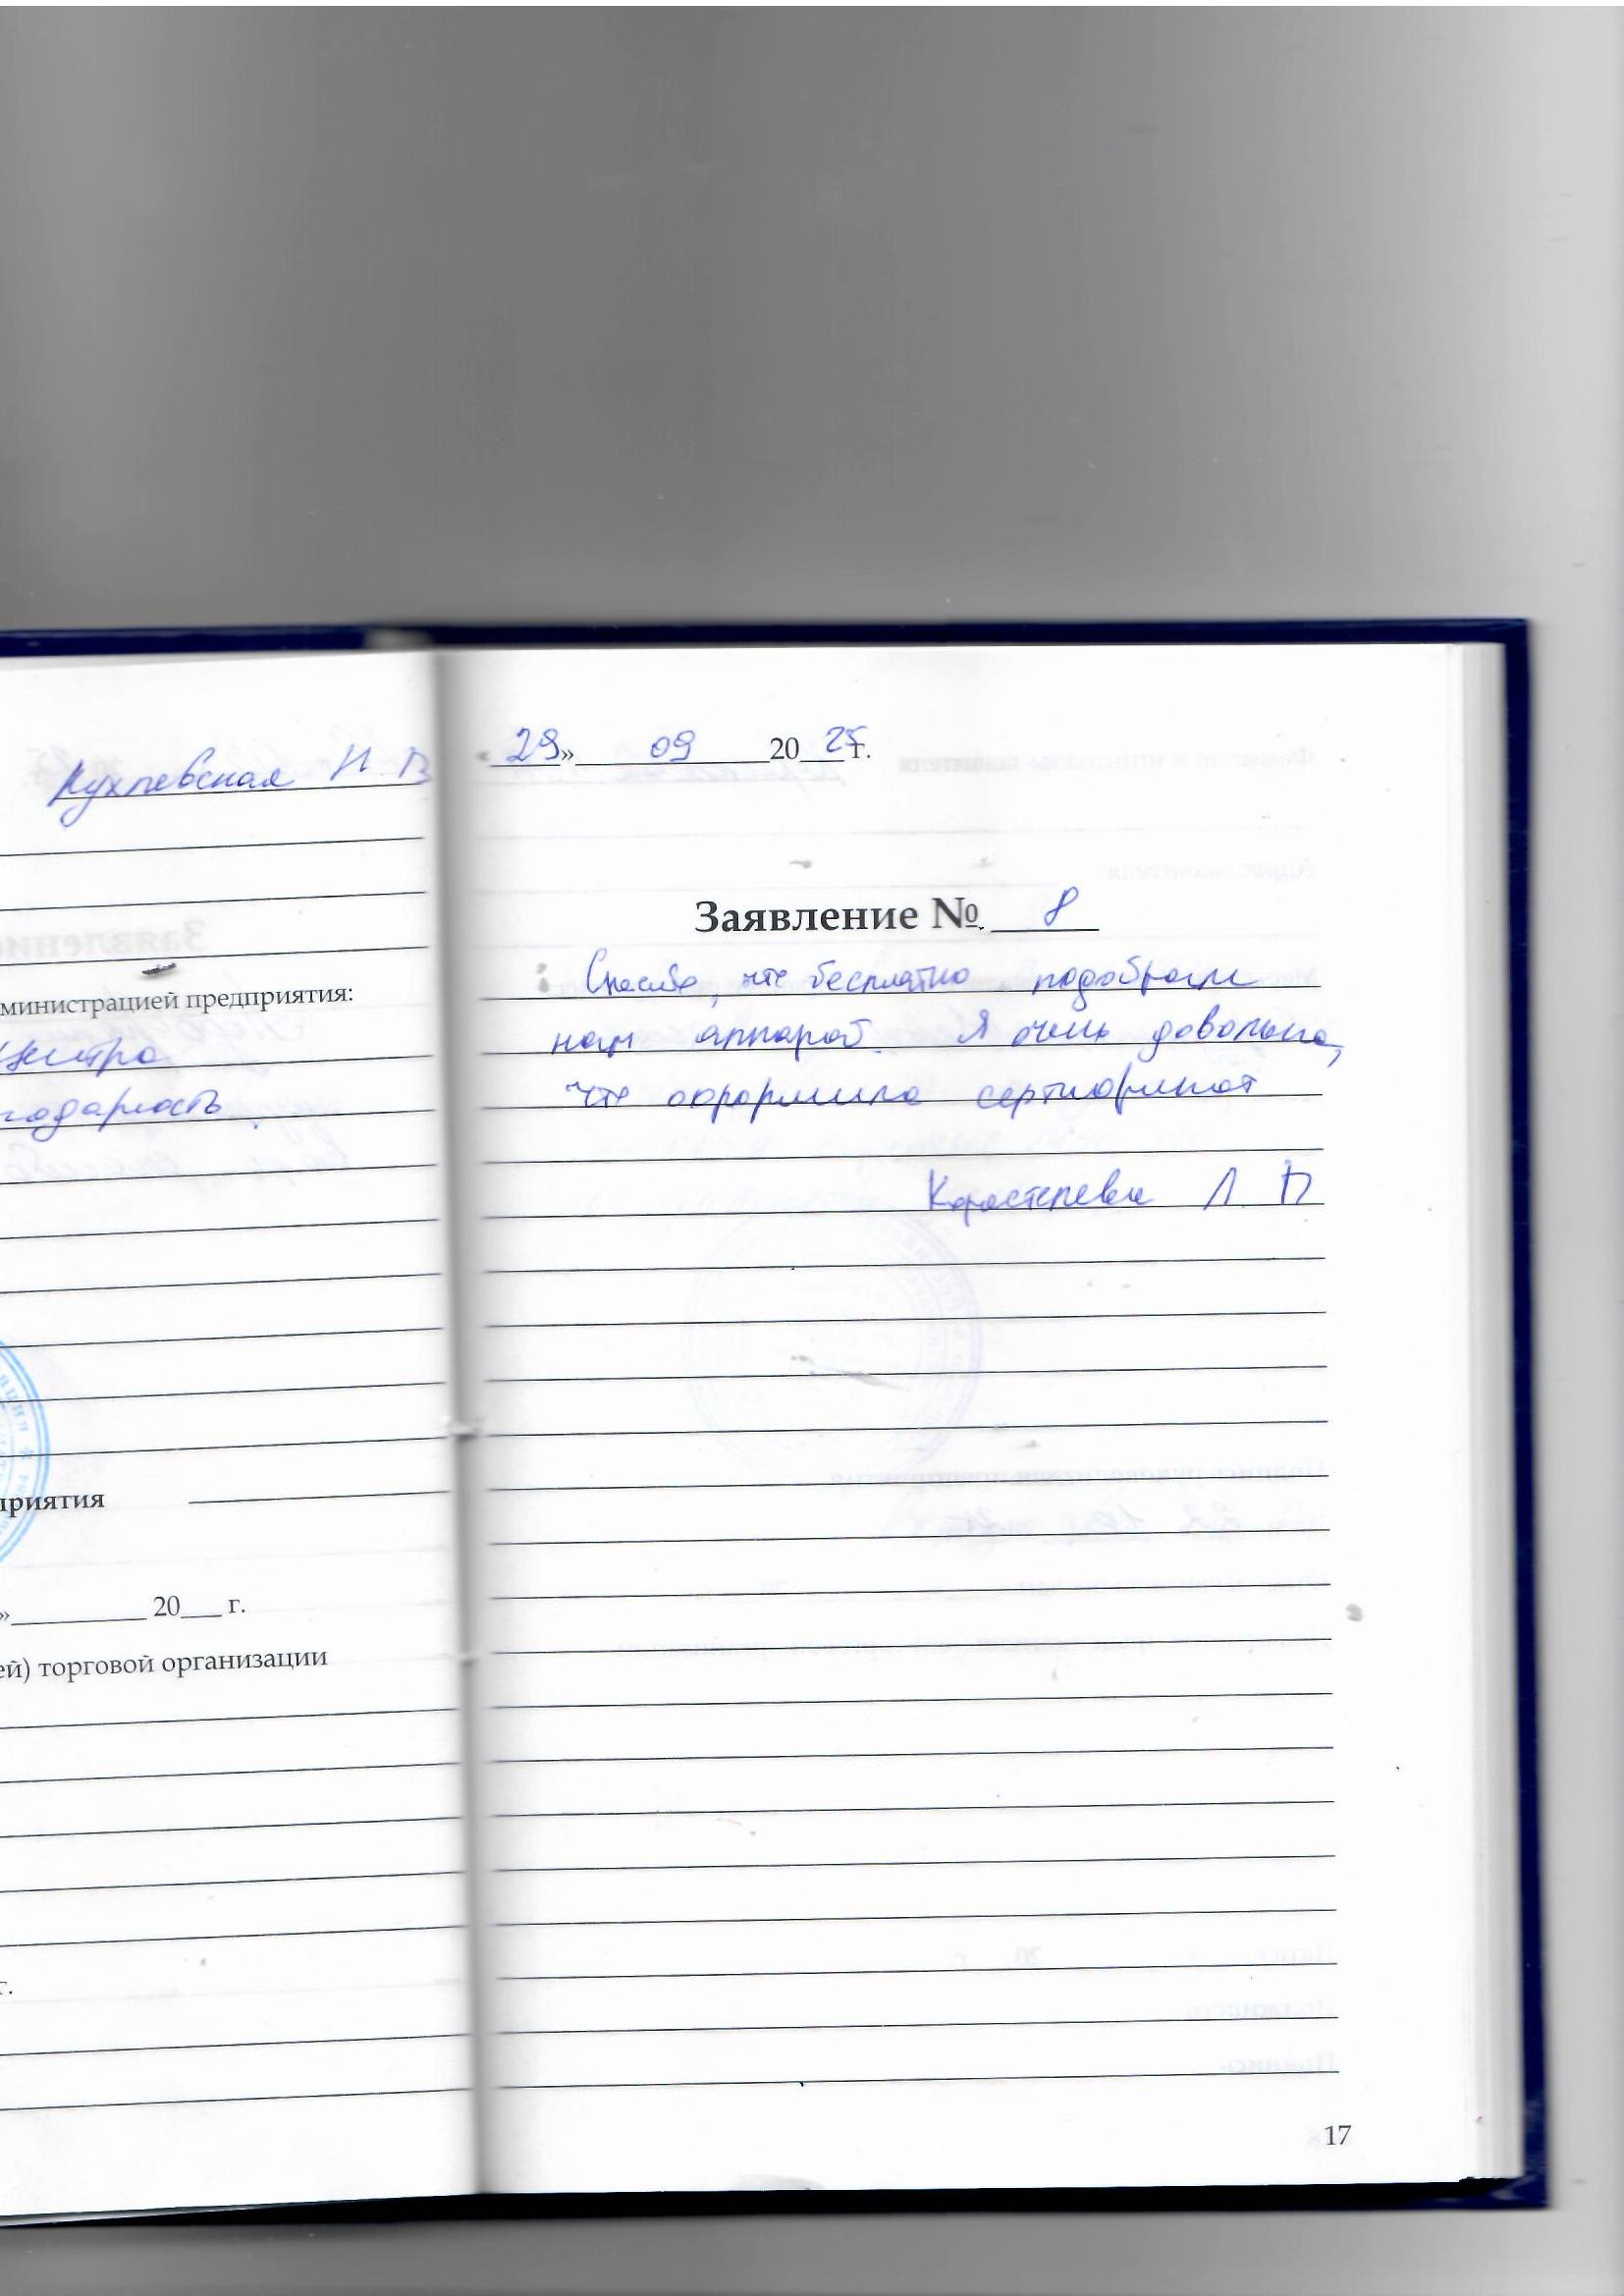 Кухлевская Н. В
министрацией предприятия:
центра
годарность.
приятия
»__________ 20___ г.
ей) торговой организации
г.
29»______09______20 25 г.
Заявление № 8
Спасибо, что бесплатно подобрали
нам аппарат. Я очень довольна,
что оформила сертификат
Л. П
17